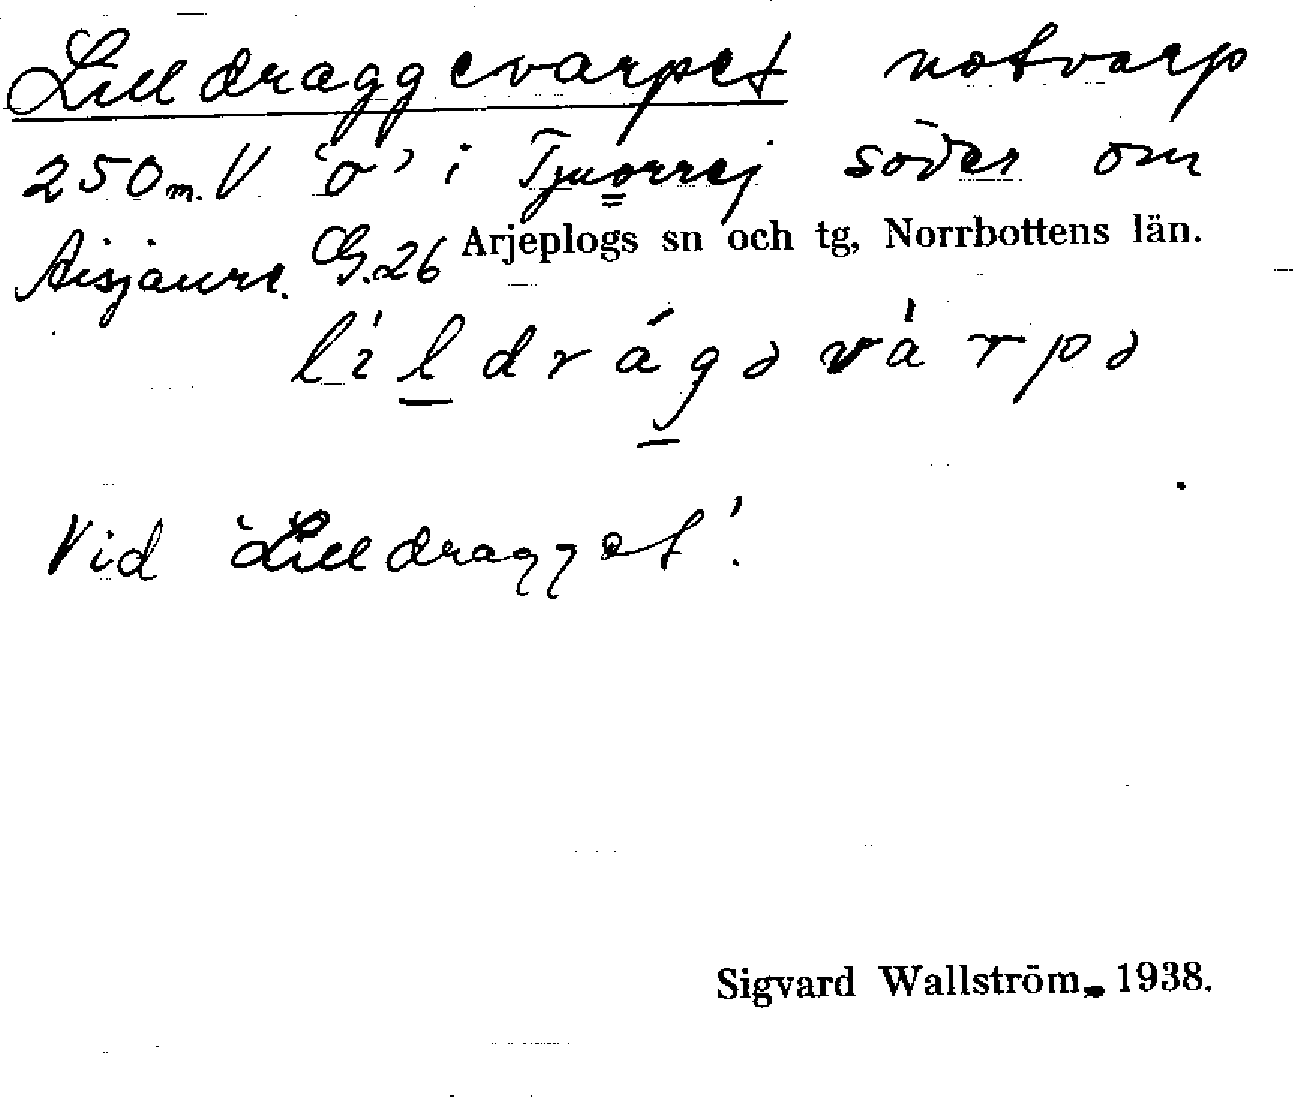 Lilldraggevarpet notvarp
250 m. V 'o' i Tjuorrej söder om
Aisjaure. G.26 Arjeplogs sn och tg, Norrbottens län.
lìldrágəvàrpə
Vid 'Lilldragget'.
Sigvard Wallström, 1938.